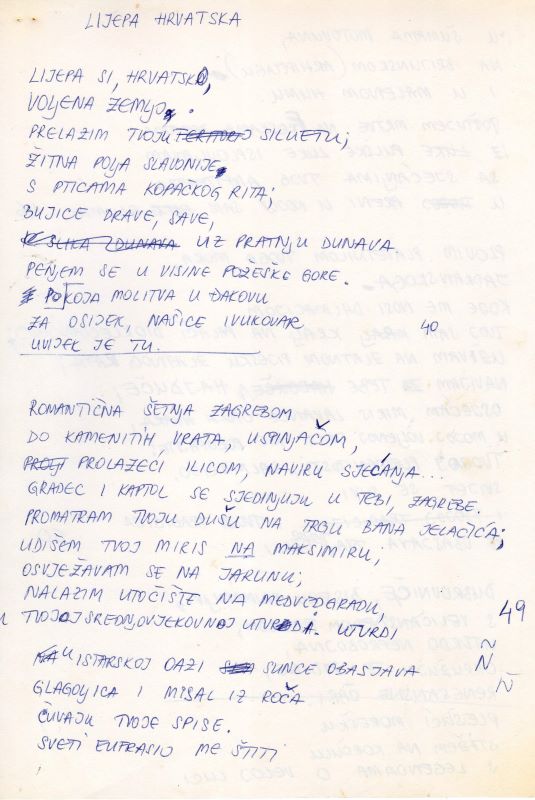 LIJEPA HRVATSKA
LIJEPA SI, HRVATSKO,
VOLJENA ZEMLJO,
PRELAZIM TVOJU SILUETU;
ŽITNA POLJA SLAVONIJE,
S PTICAMA KOPAČKOG RITA;
BUJICE DRAVE, SAVE,
SLIKA DUNAVA UZ PRATNJU DUNAVA.
PENJEM SE U VISINE POŽEŠKE GORE.
POKOJA MOLITVA U ĐAKOVU
ZA OSIJEK, NAŠICE I VUKOVAR 40
UVIJEK JE TU.
ROMANTIČNA ŠETNJA ZAGREBOM
DO KAMENITIH, VRATA, USPINJAČOM,
PROLAZEĆI ILICOM, NAVIRU SJEĆANJA...
GRADEC I KAPTOL SE SJEDINJUJU U TEBI, ZAGREBE.
PROMATRAM TVOJU DUŠU NA TRGU BANA JELAČIĆA;
UDIŠEM TVOJ MIRIS NA MAKSIMIRU,
OSVJEŽAVAM SE NA JARUNU;
NALAZIM UTOČIŠTE NA MEDVEDGRADU,
U TVOJOJ SREDNJOVJEKOVNOJ UTVRDA. UTVRDI 49
NA U ISTARSKOJ OAZI SUNCE OBASJAVA Ñ
GLAGOLJICA I MISAL IZ ROČA
ČUVAJU TVOJE SPISE.
SVETI EUFRASIO ME ŠTITI